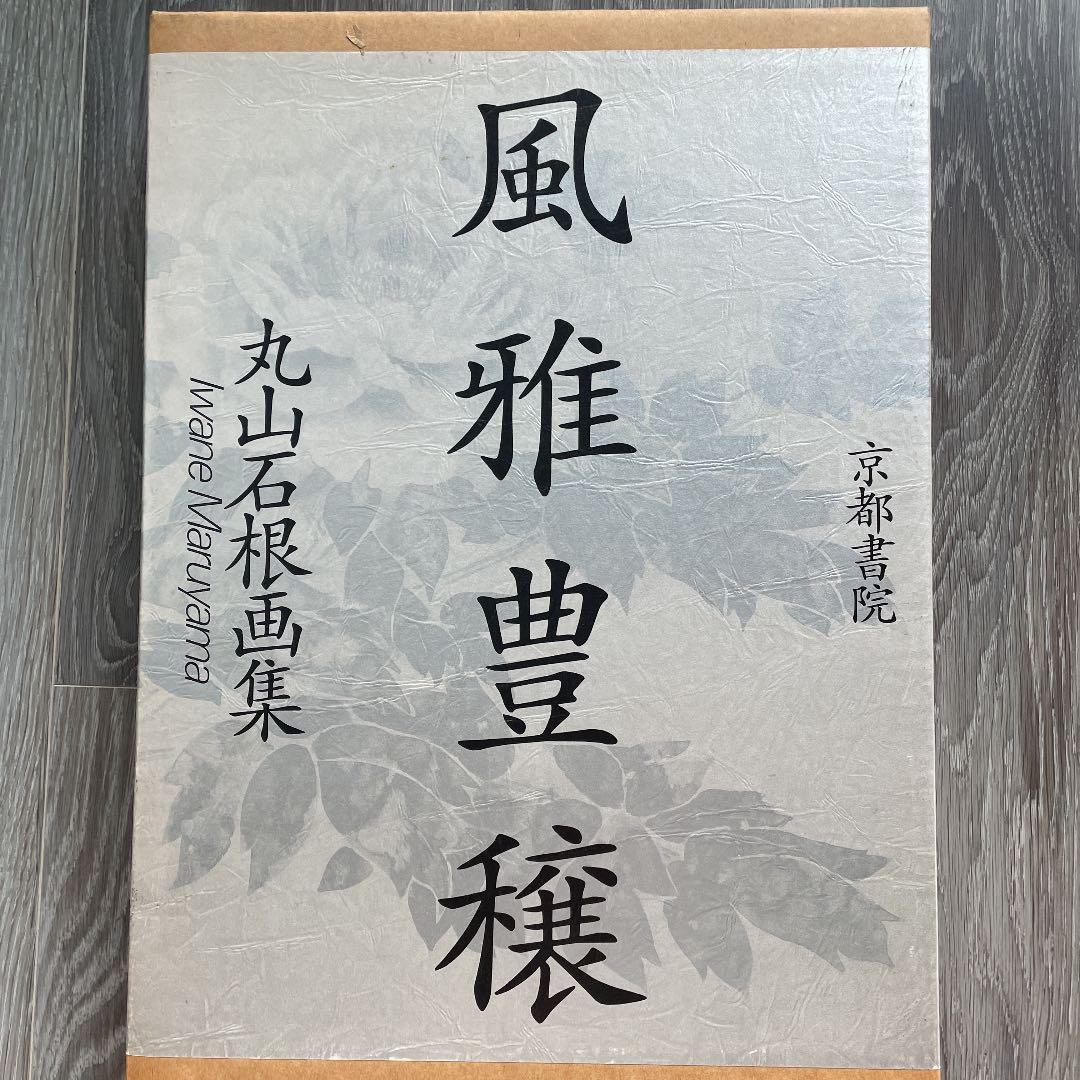 京都書院
風雅豊穣
丸山石根画集
Iwane Maruyama